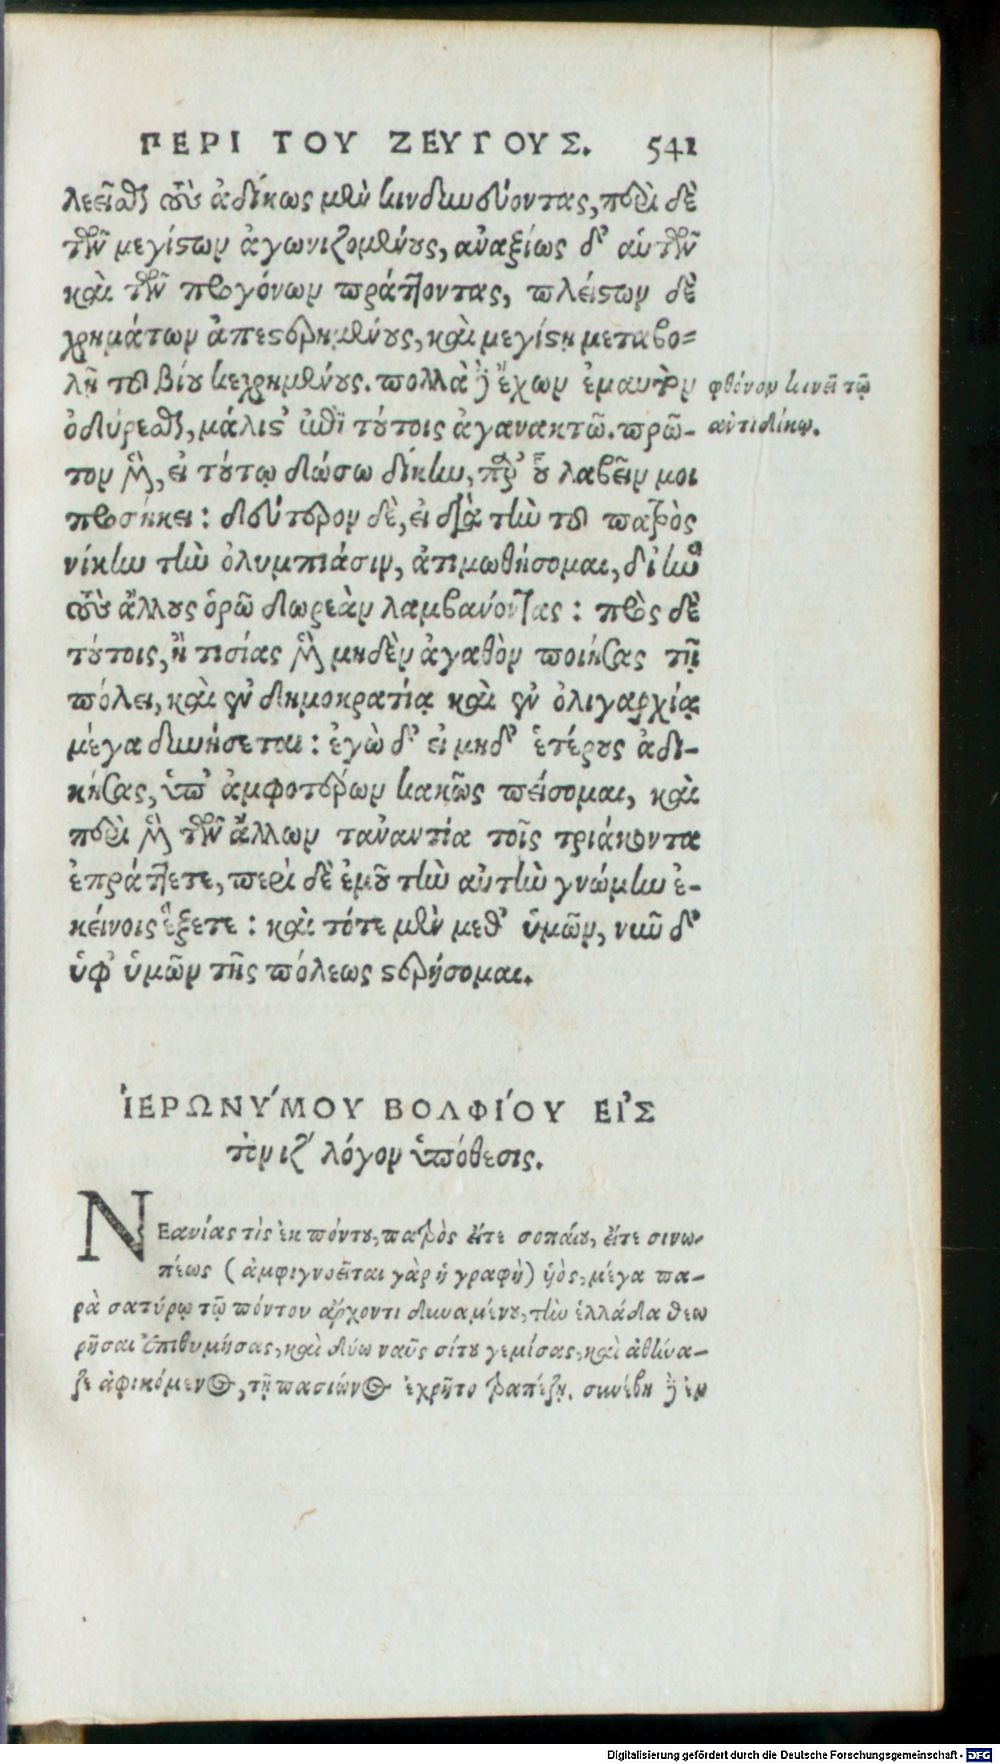 ΠΕΡΙ ΤΟΥ ΖΕΥΓΟΥΣ. 541
λεεῖσθαι τοὺς ἀδίκως μὲν κινδυνεύοντας, περὶ δὲ
τῶν μεγίστων ἀγωνιζομένους, ἀναξίως δ' αὑτῶν
καὶ τῶν προγόνων πράττοντας, πλείστων δὲ
χρημάτων ἀπεστερημένους, καὶ μεγίστῃ μεταβο=
λῇ τοῦ βίου κεχρημένους. πολλὰ δ' ἔχων ἐμαυτὸν
ὀδύρεσθαι, μάλιστ' ἐπὶ τούτοις ἀγανακτῶ. πρῶ-
τον μὲν, εἰ τούτῳ δώσω δίκην, παρ' οὗ λαβεῖν μοι
προσήκει: δεύτερον δὲ, εἰ διὰ τὴν τοῦ πατρὸς
νίκην τὴν ὀλυμπιάσιν, ἀτιμωθήσομαι, δι' ἣν
τοὺς ἄλλους ὁρῶ δωρεὰν λαμβάνοντας: πρὸς δὲ
τούτοις, ἢ τισίας μὲν μηδὲν ἀγαθὸν ποιήσας τῇ
πόλει, καὶ ἐν δημοκρατίᾳ καὶ ἐν ὀλιγαρχίᾳ
μέγα δυνήσεται: ἐγὼ δ' εἰ μηδ' ἑτέρους ἀδι-
κήσας, ὑπ' ἀμφοτέρων κακῶς πείσομαι, καὶ
περὶ μὲν τῶν ἄλλων ταναντία τοῖς τριάκοντα
ἐπράττετε, περὶ δὲ ἐμοῦ τὴν αὐτὴν γνώμην ἐ-
κείνοις ἕξετε: καὶ τότε μὲν μεθ' ὑμῶν, νῦν δ'
ὑφ' ὑμῶν τῆς πόλεως στερήσομαι.
φθόνον κινεῖ τῷ
ἀντιδίκῳ.
ἹΕΡΩΝΥ΄ΜΟΥ ΒΟΛΦΙ΄ΟΥ ΕΙ᾿Σ
τὸν ιζ' λόγον ὑπόθεσις.
ΝΕανίας τὶς ἐκ πόντου, πατρὸς εἴτε σοπαίου, εἴτε σινω-
πέως (ἀμφιγνοεῖται γὰρ ἡ γραφὴ) ὑὸς, μέγα πα-
ρὰ σατύρῳ τῷ πόντου ἄρχοντι δυναμένου, τὴν ἑλλάδα θεω
ρῆσαι ἐπιθυμήσας, καὶ δύω ναῦς σίτου γεμίσας, καὶ ἀθήνα-
ζε ἀφικόμενος, τῇ πασίωνος ἐχρῆτο τραπέζῃ. συνέβη δ' ἐν
Digitalisierung gefördert durch die Deutsche Forschungsgemeinschaft - DFG